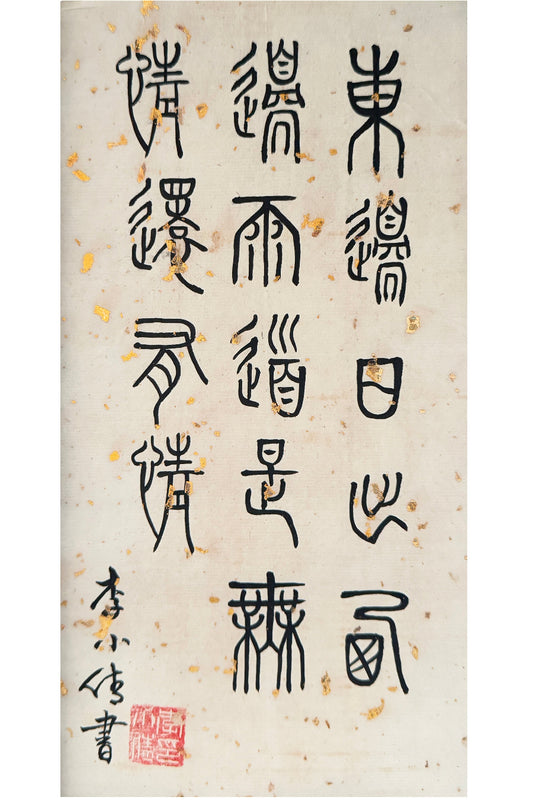 東邊日出西
邊雨道是無
情還有情
李小倩書